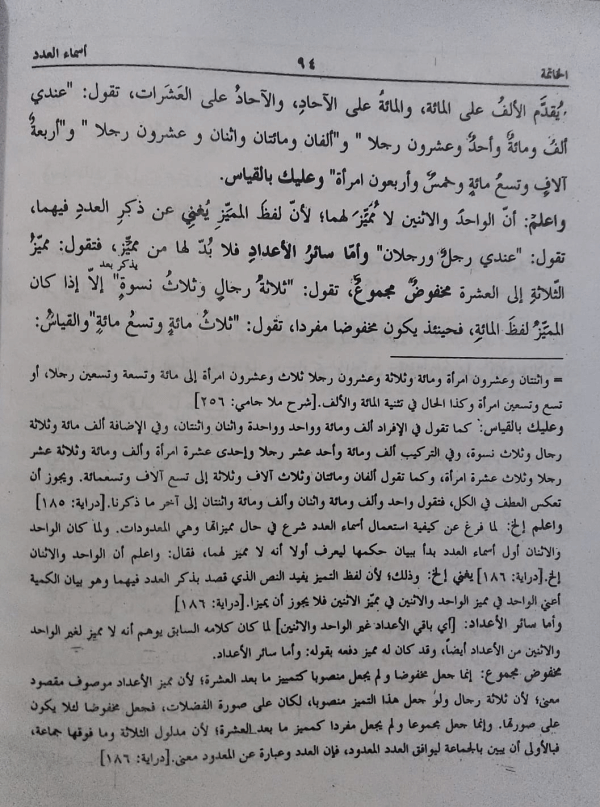 الخاتمة ٩٤ أسماء العدد
يُقدَّم الألفُ على المائة، والمائةُ على الآحادِ، والآحادُ على العَشَرات، تقول: "عندي
ألفٌ ومائةٌ وأحدٌ وعشرون رجلا" و"ألفان ومائتان واثنان و عشرون رجلا" و"أربعةُ
آلافٍ وتسعُ مائةٍ وخمسٌ وأربعون امرأة" وعليك بالقياس.
واعلم: أنّ الواحدَ والاثنين لا مُميِّزَ لهما؛ لأنّ لفظَ المميّزِ يُغني عن ذكرِ العددِ فيهما،
تقول: "عندي رجلٌ ورجلان" وأمّا سائرُ الأعدادِ فلا بُدّ لها من مميِّزٍ، فتقول: مميّزُ
الثّلاثةِ إلى العشرة مخفوضٌ مجموعٌ، تقول: "ثلاثةُ رجالٍ وثلاثُ نسوةٍ" إلاّ إذا كان
يذكر بعد
المميّزُ لفظَ المائةِ، فحينئذ يكون مخفوضا مفردا، تقول: "ثلاثُ مائةٍ وتسعُ مائةٍ" والقياسُ:
= واثنتان وعشرون امرأة ومائة وثلاثة وعشرون رجلا ثلاث وعشرون امرأة إلى مائة وتسعة وتسعين رجلا، أو
تسع وتسعين امرأة وكذا الحال في تثنية المائة والألف.[شرح ملا جامي: ٢٥٦]
وعليك بالقياس: كما تقول في الإفراد ألف ومائة وواحد وواحدة واثنان واثنتان، وفي الإضافة ألف مائة وثلاثة
رجال وثلاث نسوة، وفي التركيب ألف ومائة وأحد عشر رجلا وإحدى عشرة امرأة وألف ومائة وثلاثة عشر
رجلا وثلاث عشرة امرأة، وكما تقول ألفان ومائتان وثلاث آلاف وثلاثة إلى تسع آلاف وتسعمائة. ويجوز أن
تعكس العطف في الكل، فتقول واحد وألف ومائة واثنان وألف ومائة واثنتان إلى آخر ما ذكرنا.[دراية: ١٨٥]
واعلم إلخ: لما فرغ عن كيفية استعمال أسماء العدد شرع في حال مميزاتها وهي المعدودات. ولما كان الواحد
والاثنان أول أسماء العدد بدأ ببيان حكمها ليعرف أولا أنه لا مميز لهما، فقال: واعلم أن الواحد والاثنان
إلخ.[دراية: ١٨٦] يغني إلخ: وذلك؛ لأن لفظ التميز يفيد النص الذي قصد بذكر العدد فيهما وهو بيان الكمية
أعني الواحد في مميز الواحد والاثنين في مميّز الاثنين فلا يجوز أن يميزا.[دراية: ١٨٦]
وأما سائر الأعداد: [أي باقي الأعداد غير الواحد والاثنين] لما كان كلامه السابق يوهم أنه لا مميز لغير الواحد
والاثنين من الأعداد أيضاً، وقد كان له مميز دفعه بقوله: وأما سائر الأعداد.
مخفوض مجموع: إنما جعل مخفوضا ولم يجعل منصوبا كتمييز ما بعد العشرة؛ لأن مميز الأعداد موصوف مقصود
معنى؛ لأن ثلاثة رجال ولو جعل هذا التميز منصوبا، لكان على صورة الفضلات، فجعل مخفوضا لئلا يكون
على صورتها. وإنما جعل مجموعا ولم يجعل مفردا كمميز ما بعد العشرة؛ لأن مدلول الثلاثة وما فوقها جماعة،
فبالأولى أن يبين بالجماعة ليوافق العدد المعدود، فإن العدد وعبارة عن المعدود معنى.[دراية: ١٨٦]